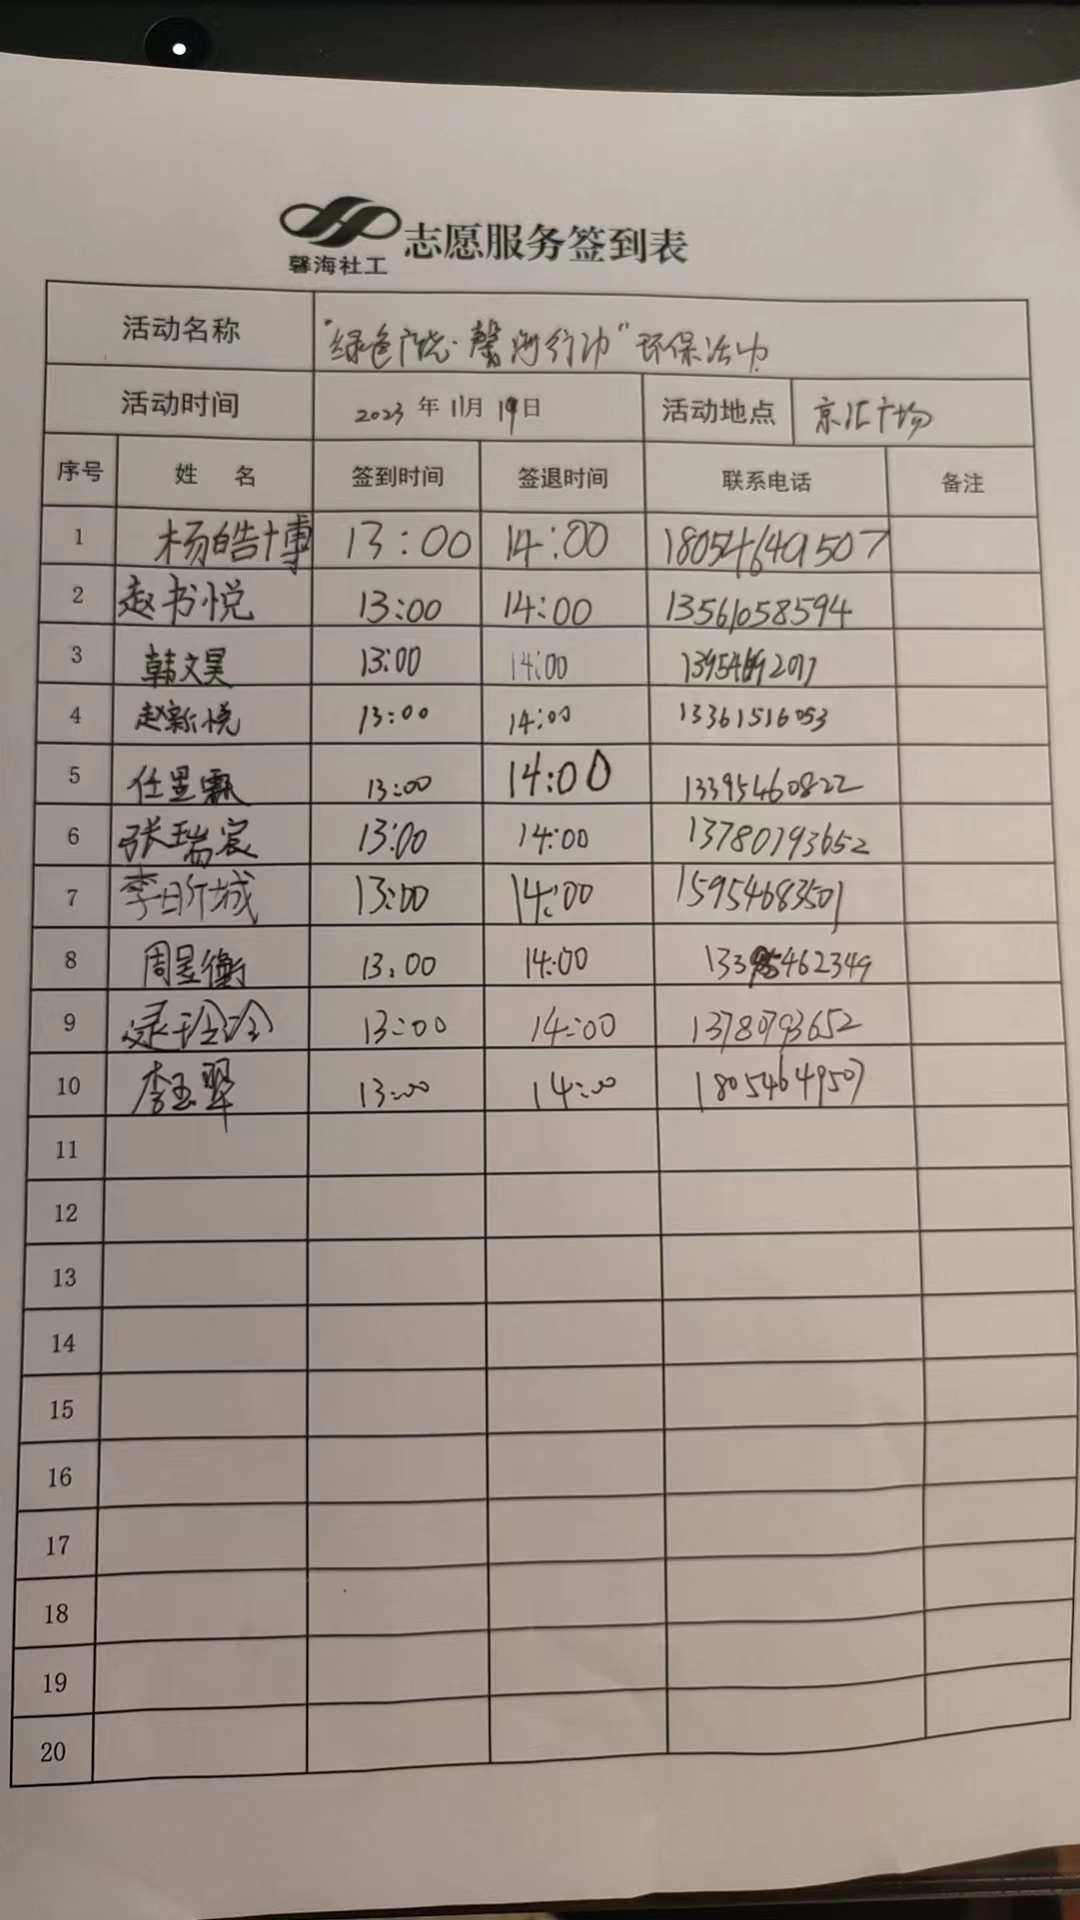 馨海社工
志愿服务签到表
活动名称 "绿色广饶·馨海行动"环保活动
活动时间 2023年11月19日 活动地点 京汇广场
序号 姓 名 签到时间 签退时间 联系电话 备注
1 杨皓博 13:00 14:00 18054649507
2 赵书悦 13:00 14:00 13561058594
3 韩文昊 13:00 14:00
4 赵新悦 13:00 14:00 13361516053
5 任昱霏 13:00 14:00 13395460822
6 张瑞宸 13:00 14:00 13780793652
7 李昕城 13:00 14:00 15954683501
8 周昱衡 13:00 14:00 13395462349
9 玲玲 13:00 14:00 13780793652
10 李玉翠 13:00 14:00 18054649507
11
12
13
14
15
16
17
18
19
20